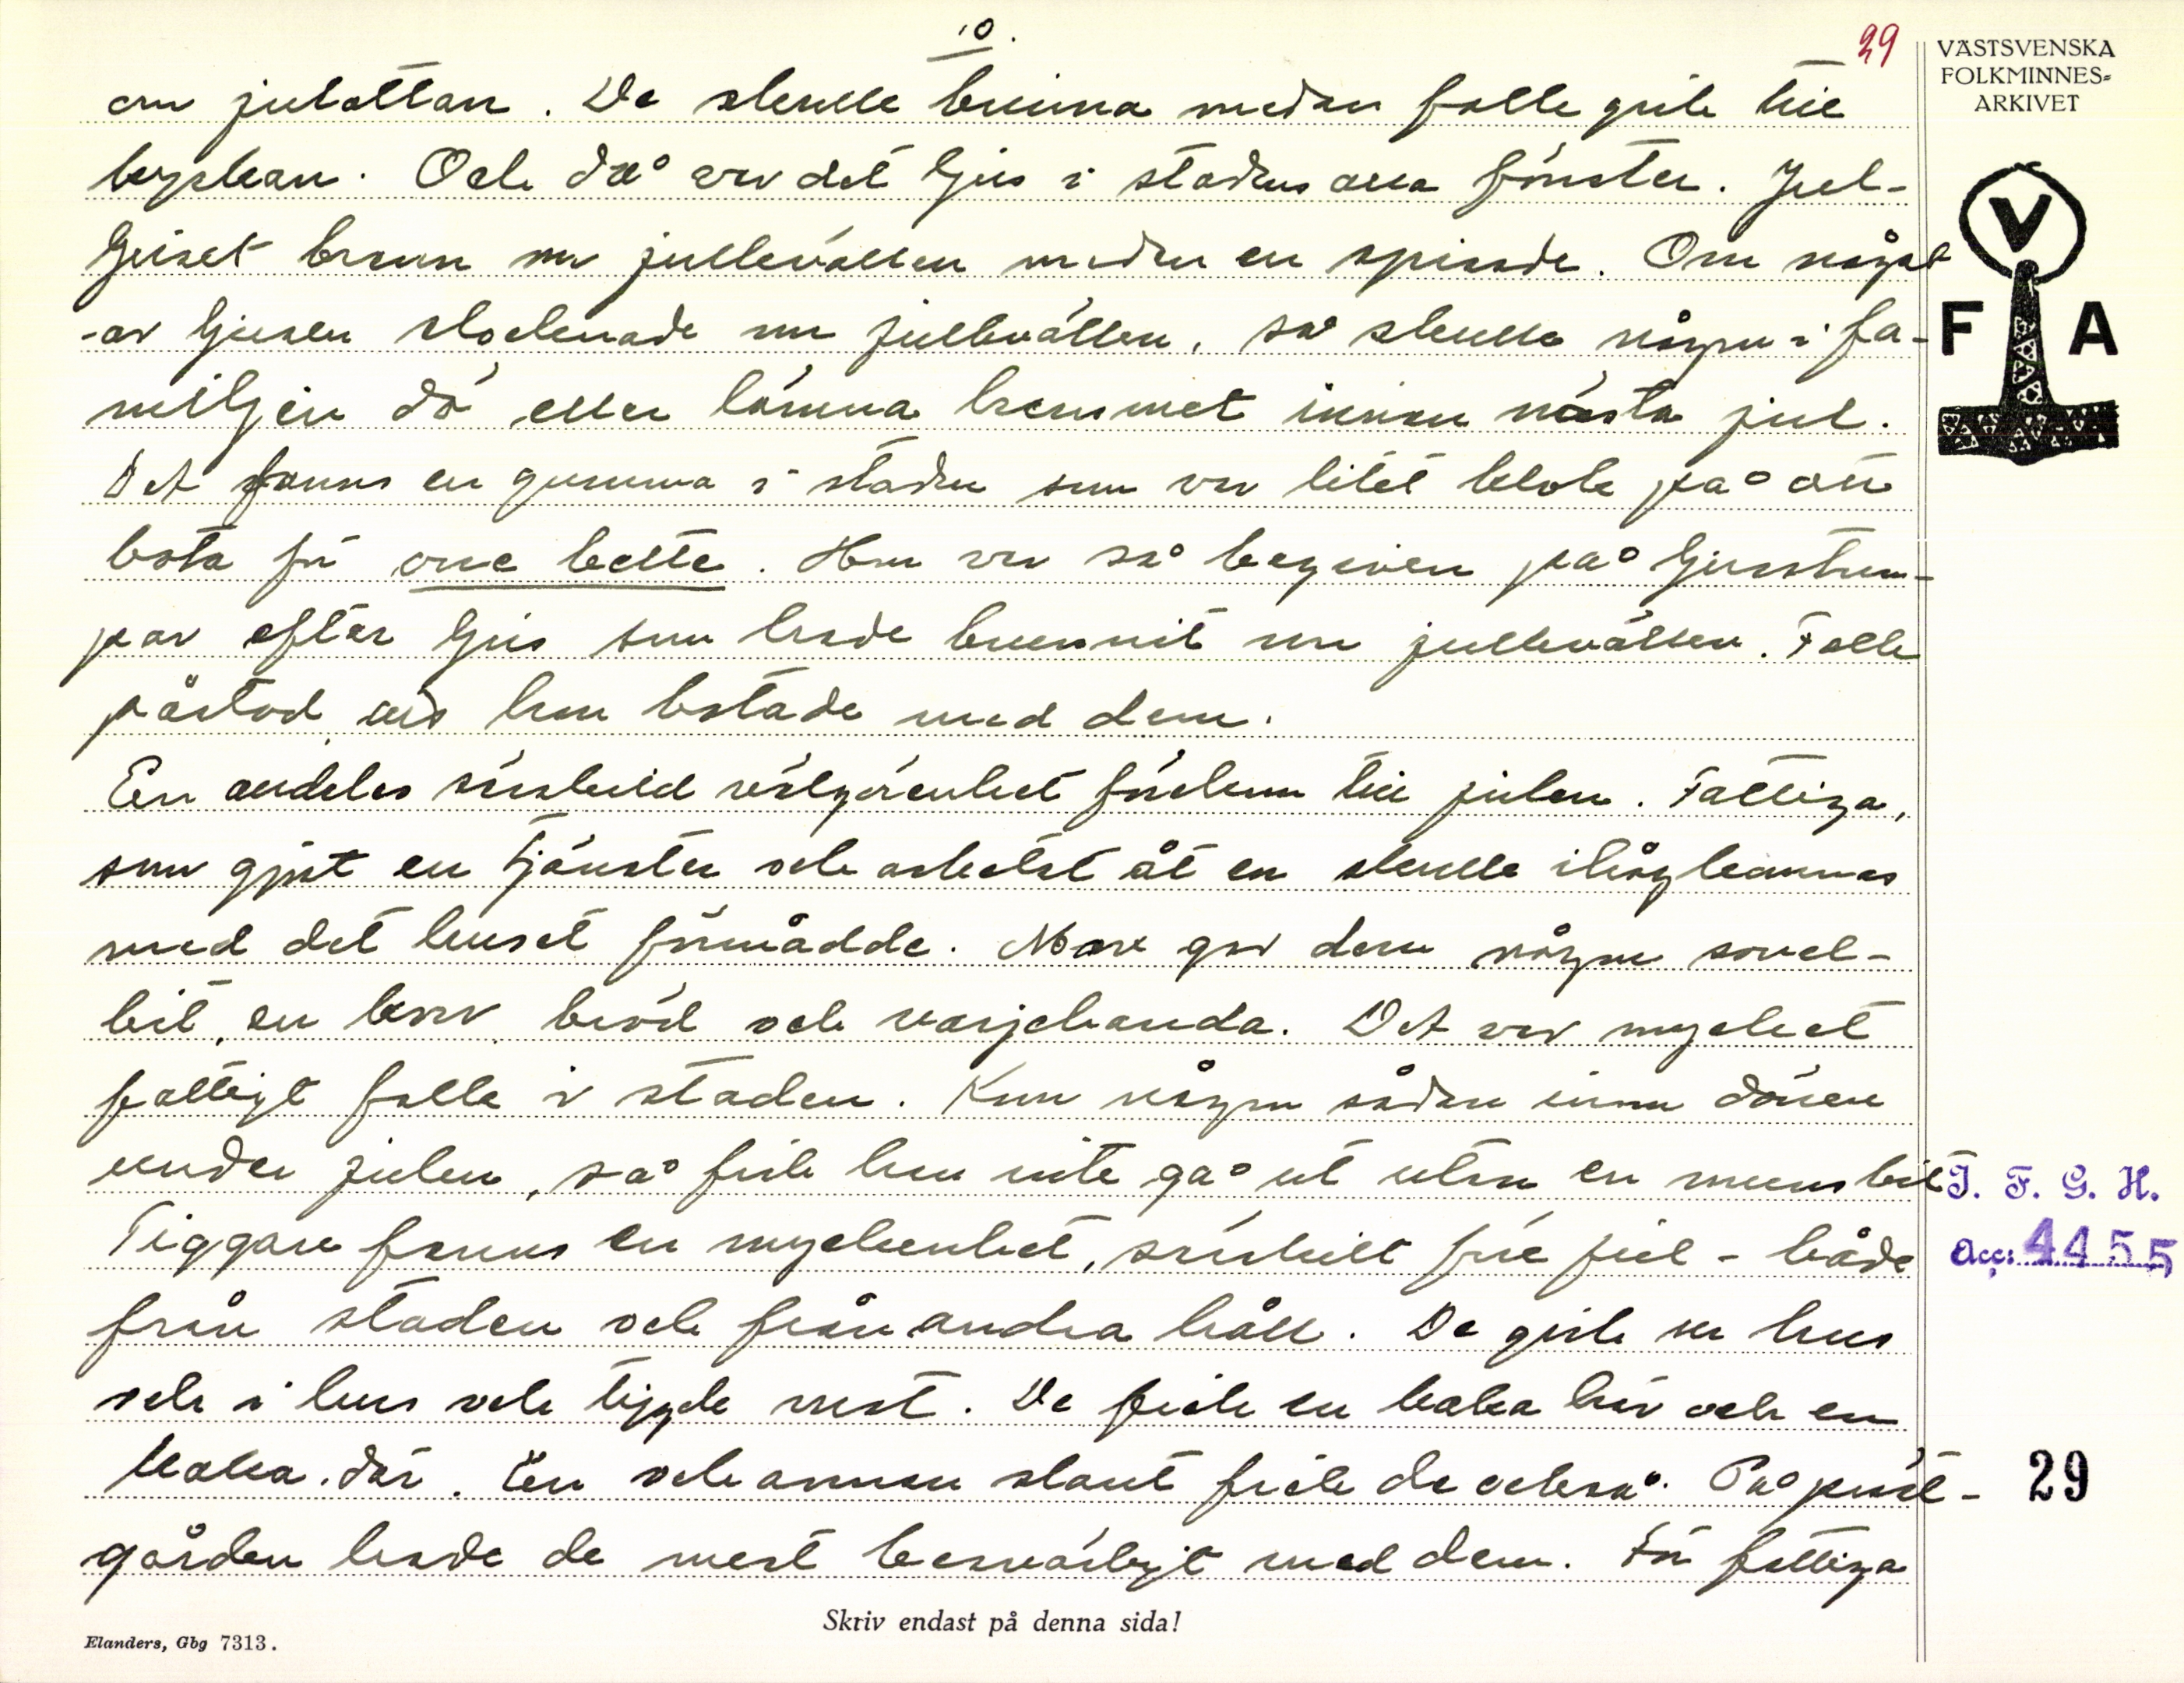 10.
29
VÄSTSVENSKA
FOLKMINNES=
ARKIVET
om julottan. De skulle brinna medan folk gick till
kyrkan. Och då var det ljus i stadens alla fönster. Jul-
ljuset brann om julkvällen medan en spisade. Om något
av ljusen slocknade om julkvällen, så skulle någon i fa-
miljen dö eller lämna hemmet innan nästa jul.
Det fanns en gumma i staden som var litet klok på att
bota för onc bette. Hon var så begiven på ljusstum-
par efter ljus som hade brunnit om julkvällen. Folk
påstod att hon botade med dem.
En alldeles särskild välgörenhet förekom till julen. Fattiga,
som gjort en tjänster och arbetat åt en skulle ihågkommas
med det huset förmådde. Man gav dem någon sovel-
bit, en korv bröd och varjehanda. Det var mycket
fattigt folk i staden. Kom någon sådan innom dörren
under julen, så fick hon inte gå ut utan en munsbit
Tiggare fanns en myckenhet, särskilt för jul - både
från staden och från andra håll. De gick ur hus
och i hus och tiggde mat. De fick en kaka här och en
kaka där. En och annan slant fick de också. På präst-
gården hade de mest besvärligt med dem. För fattiga
V
F A
I. F. G. H.
Acc: 4455
29
Skriv endast på denna sida!
Elanders, Gbg 7313.